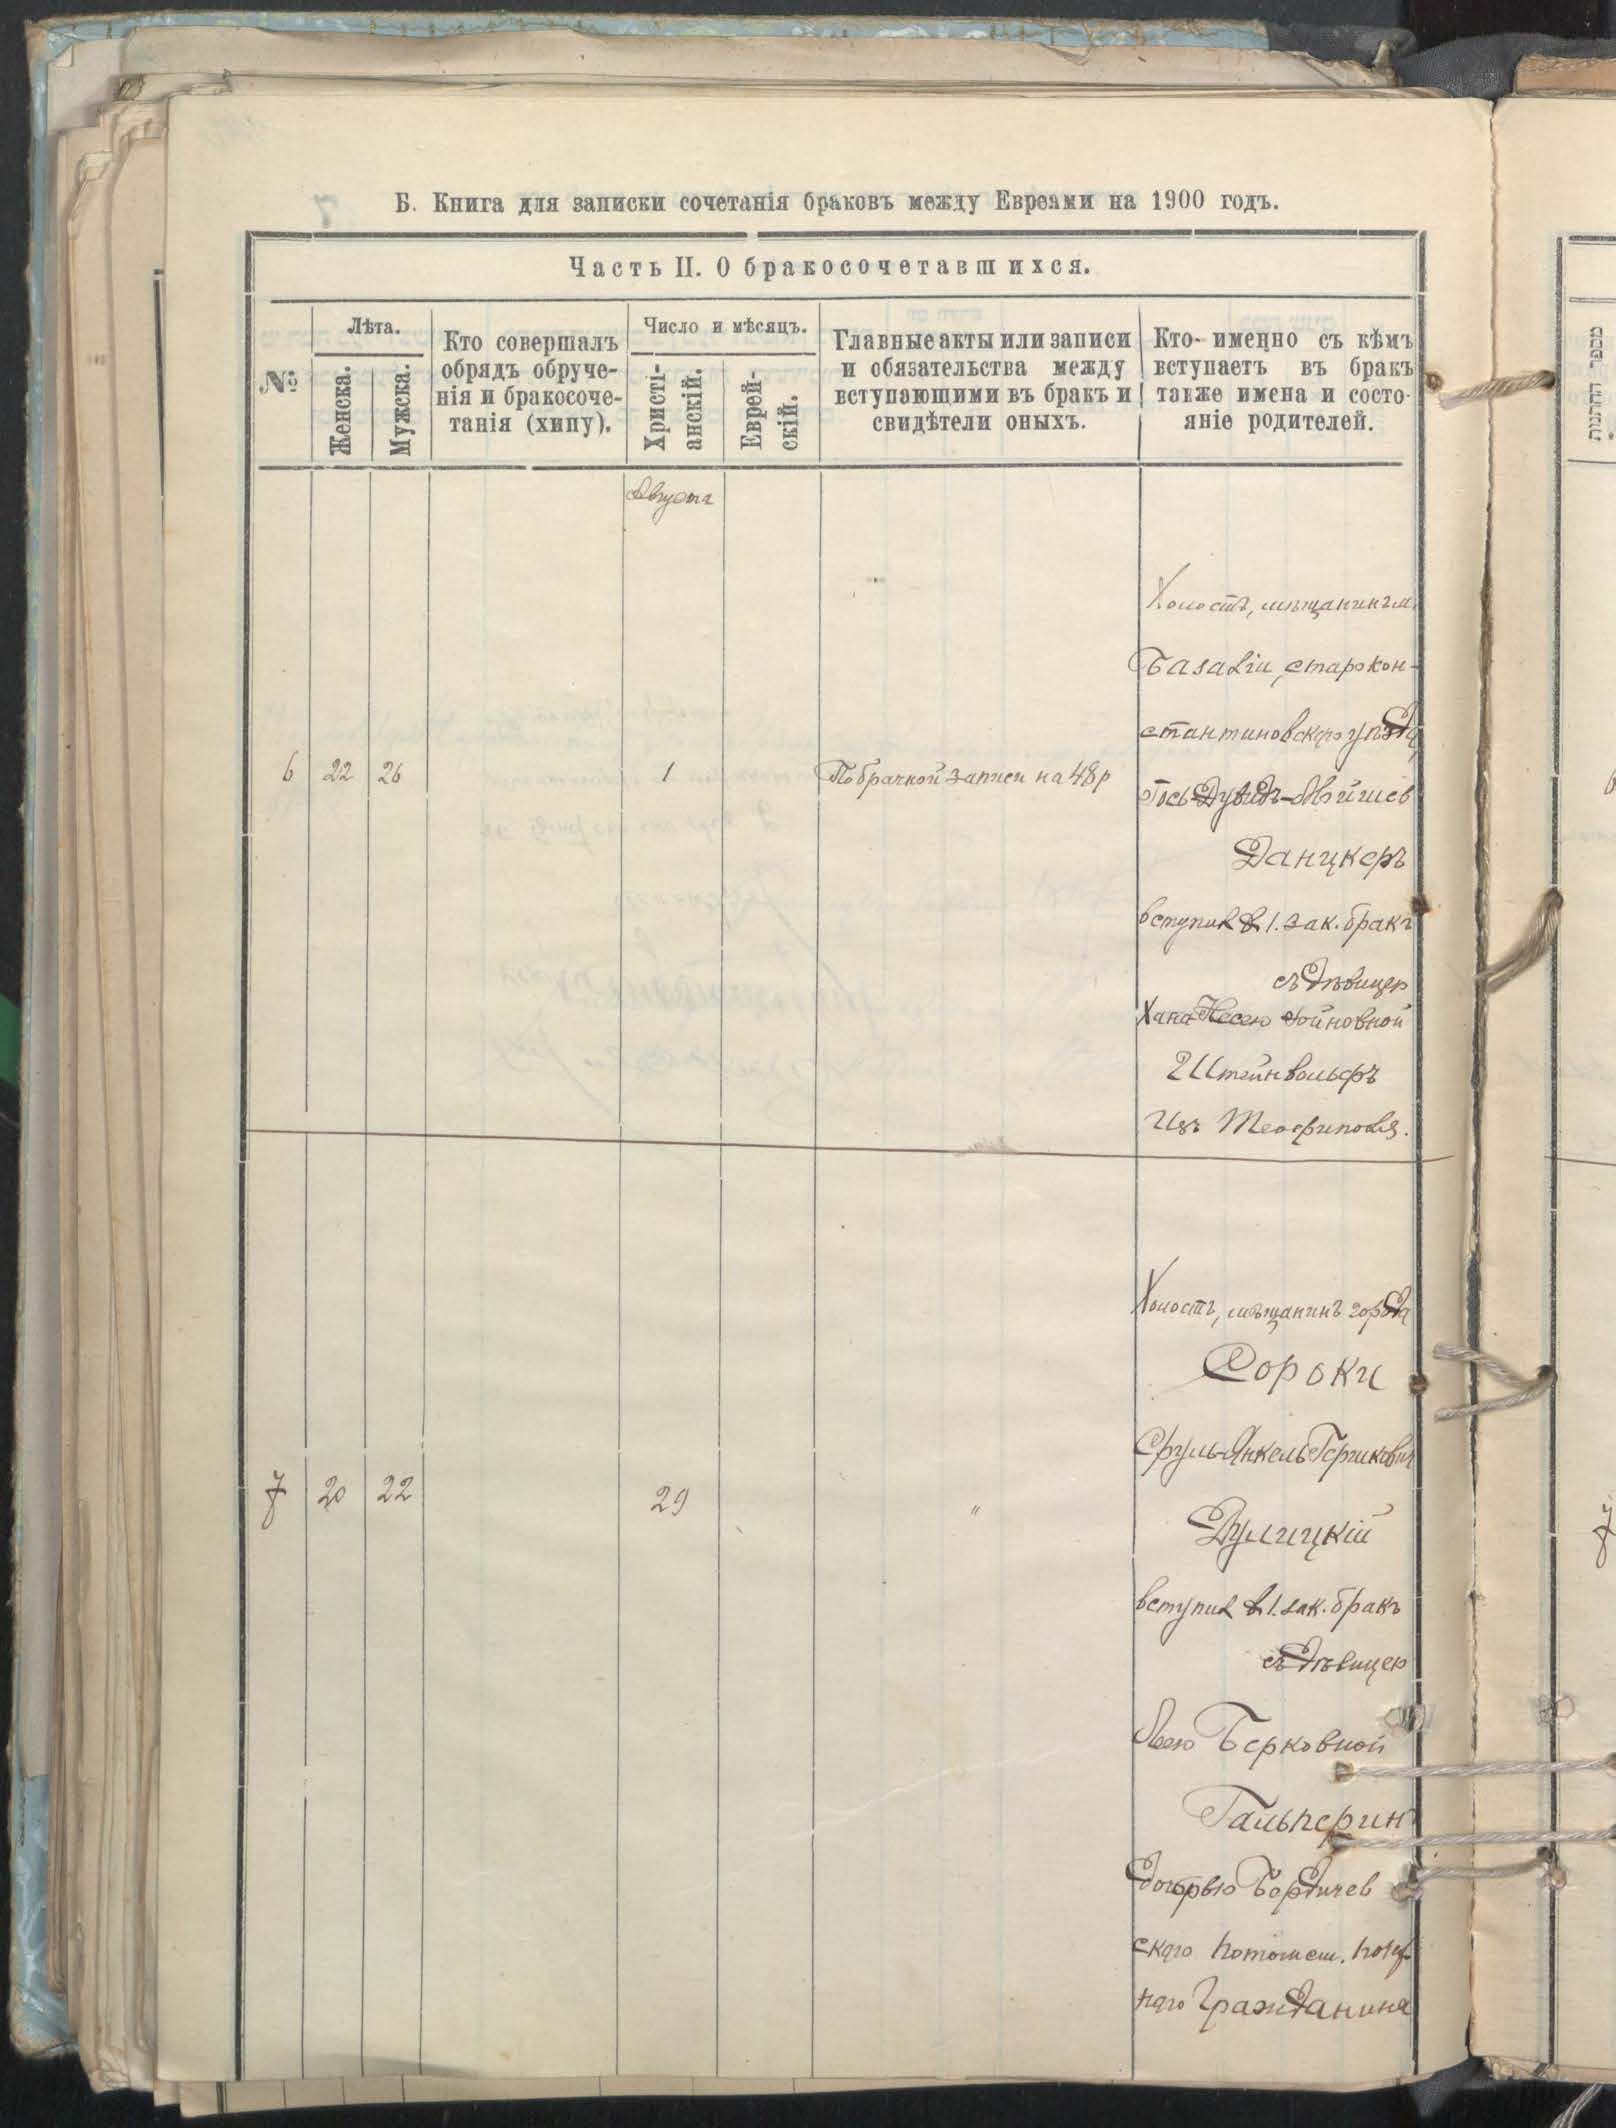 Б. Книга для записки сочетанія браковъ между Евреями на 1900 годъ.
Часть II. О бракосочетавшихся.
№
Лѣта.
Женска.
Мужска.
Кто совершалъ
обрядъ обруче-
нія и бракосоче-
танія (хипу).
Число и мѣсяцъ.
Христі-
анскій.
Еврей-
скій.
Главные акты или записи
и обязательства между
вступающими въ бракъ и
свидѣтели оныхъ.
Кто-именно съ кѣмъ
вступаетъ въ бракъ
также имена и состо-
яніе родителей.
Августа
6 22 26 1 По брачной записи на 48 р
Холостъ, мѣщанинъ м.
Базаліи, старокон-
стантиновскаго уѣзда
Іось-Дувидъ-
Данцкеръ
вступил в 1. зак. бракъ
съ дѣвицею
Хана Несею Іойновной
Штейнвольфъ
Изъ Теофиполя.
7 20 22 29 "
Холостъ, мѣщанинъ города
Сороки
Сруль-Янкель Гершкович
Дулицкій
вступил в 1. зак. бракъ
съ дѣвицею
Леею Берковной
Гальперин
дочерью Бердичев
скаго потомств. почет
наго Гражданина
מספר החתנות